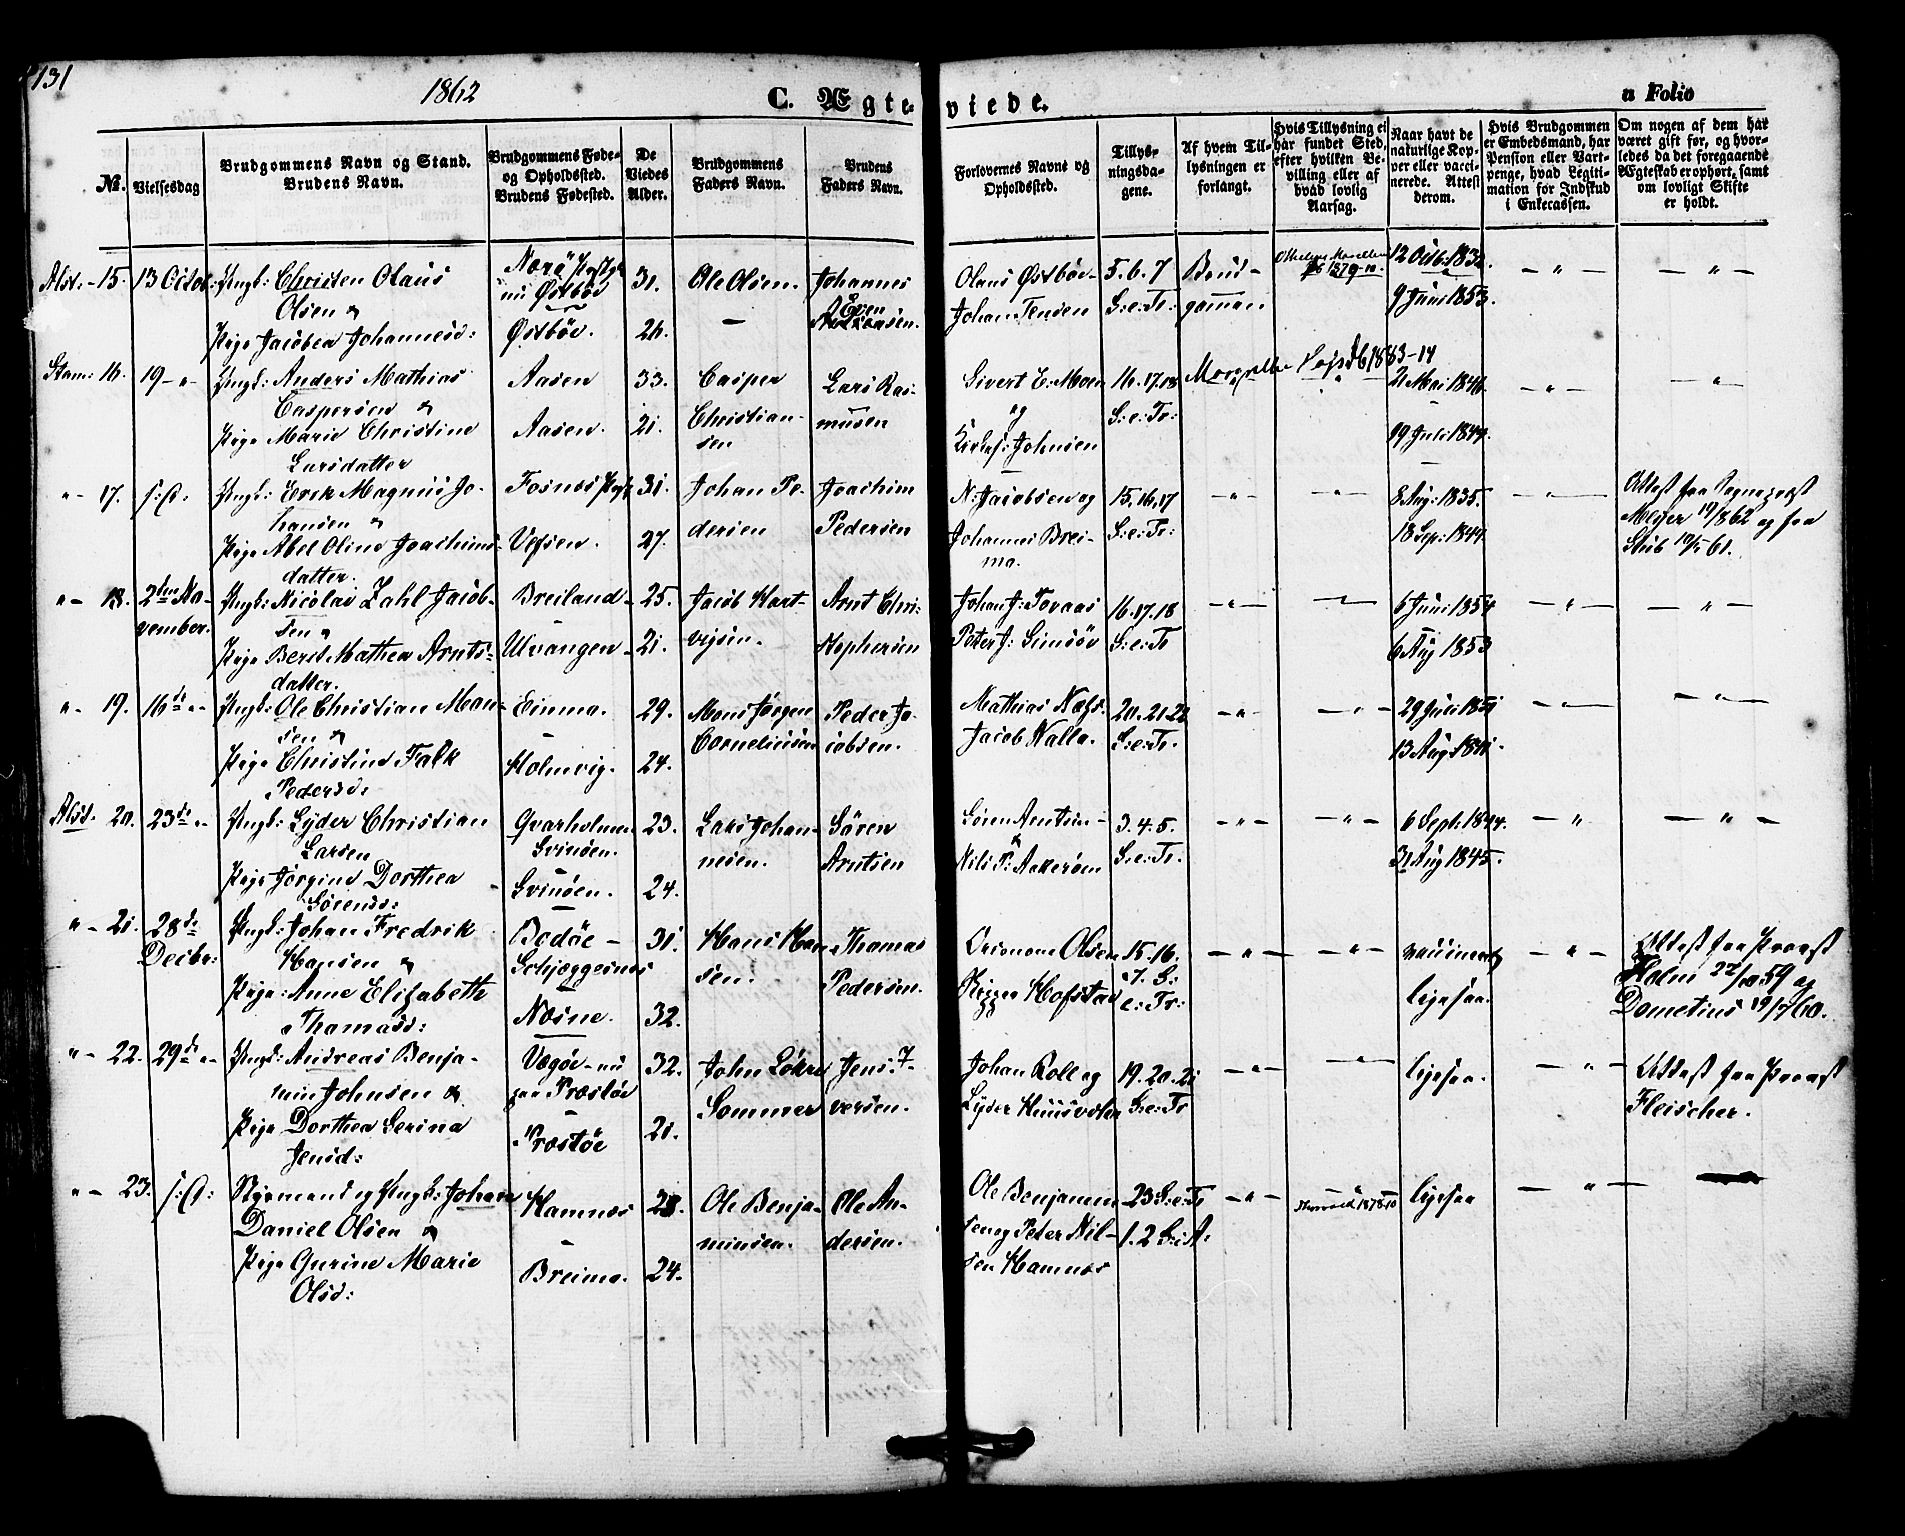 131
1862
C. Ægte-viede.
a Folio
No.
Vielsesdag
Brudgommens Navn og Stand.
Brudens Navn.
Brudgommens Føde-
og Opholdssted.
Brudens Fødested.
De
Viedes
Alder.
Brudgommens
Faders Navn.
Brudens
Faders Navn.
Forlovernes Navne og
Opholdssted.
Tillys-
ningsda-
gene.
Af hvem Til-
lysningen er
forlangt.
Hvis Tillysning ei
har fundet Sted,
efter hvilken Be-
villing eller af
hvad lovlig
Aarsag.
Naar havt de
naturlige Kop-
per eller vacci-
nerede. Attest
derom.
Hvis Brudgommen
er Embedsmand, har
Pension eller Vart-
penge, hvad Legiti-
mation for Indskud
i Enkecassen.
Om nogen af dem har
været gift før, og hvor-
ledes da det foregaaende
Ægteskab er ophørt, samt
om lovligt Skifte
er holdt.
Alst: - 15. 13 Octob: Ungk: Christen Olaus
Olsen og
Pige Jacobea Johannesd:
Nærø Præstgj
nu Østbøe
Østbøe.
31.
26.
Ole Olsen.
—
Johannes
Olaus Østbøe
Johan Jensen
5. 6. 7
S: e: Tr:
Brud-
goman
12 Octb: 1832.
9 Juni 1853.
— " —
— " —
Stam: 16. 19 - " - Ungk: Anders Mathias
Caspersen og
Pige Marie Christine
Larsdatter
Aasen
Aasen.
33.
21.
Casper
Christian-
sen
Lars Ras-
musen
Sivert E. Moen
og
Johnsen
16. 17. 18
S: e: Tr:
1883-14
21 Mai 1846
19 Juli 1849.
— " —
— " —
" - 17. s: D: Ungk: Erik Magnus Jo-
hansen og
Pige Abel Oline Joachims-
datter.
Fosnes Præstg
Vefsen.
31.
27.
Johan Pe-
dersen
Joachim
Pedersen
N: Jacobsen og
Johannes Brei-
mo.
15. 16. 17
S: e: Tr:
— " —
— " —
8 Aug: 1835.
18 Sep: 1849
— " —
Attest fra Sognepræst
Meyer 19/8 62 og fra
Stub 10/5 61.
" - 18. 2den No-
vember. Ungk: Nicolai Zahl Jacob-
sen og
Pige Berit Mathea Arnts-
datter.
Breiland
Ulvangen
25.
21.
Jacob Hart-
vigsen.
Arnt Chri-
stophersen
Johan J: Toraas
Peter J: Simsøe
16. 17. 18
S: e: Tr
— " —
— " —
6 Juni 1854
6 Aug 1853
— " —
— " —
" - 19. 16de " - Ungk: Ole Christian Mon-
sen og
Pige Christine Falk
Pedersd:
Einmo.
Holmvig.
29.
24.
Mons Jørgen
Cornelinsen
Peder Ja-
cobsen.
Mathias Næss
Jacob Valla.
20. 21. 22
S: e: Tr.
— " —
— " —
29 Juli 1851
13 Aug: 1841.
— " —
— " —
Alst. 20. 23de " - Ungk: Lyder Christian
Larsen
Pige Jørgine Dorthea
Sørensd:
Qvarholmen
Svinøen.
Svinøen.
23.
24.
Lars Johan-
nesen.
Søren
Arntsen
Søren Arntsen
og
Nils P: Aakerøen
3. 4. 5.
S: e: Tr.
— " —
— " —
6 Sept: 1844.
31 Aug 1845.
— " —
— " —
" - 21. 28de
Decbr: Ungk: Johan Fredrik
Hansen og
Pige: Anne Elizabeth
Thomasd:
Bodøe -
Schjeggesnes
Næsne.
31.
32.
Hans Han-
sen.
Thomas
Pedersen.
Olsen
Hofstad
15. 16.
17. S:
e: Tr:
— " —
— " —
ligesaa.
— " —
Attest fra Provst
Holm 22/10 59 og
Dometius 19/7 60.
" - 22. 29de " - Ungk: Andreas Benja-
min Johnsen og
Pige Dorthea Serina
Jensd:
Vegøe - nu
paa Præstøe
Præstøe
32.
21.
John Løkre
Sommer
Jens I-
versen.
Johan Roll og
Lyder Huusvolen
19. 20. 21
S: e: Tr
— " —
— " —
ligesaa.
— " —
Attest fra Provst
Fleischer.
" - 23. s: D: Styrmand og Ungk: Johan
Daniel Olsen og
Pige Gurine Marie
Olsd:
Hamnes
Breimo.
28.
24.
Ole Benja-
minsen.
Ole An-
dersen.
Ole Benjamin-
sen og Peter Nil-
sen Hamnes
23 S: e: Tr
1. 2 S: i A.
— " —
— " —
ligesaa
— " —